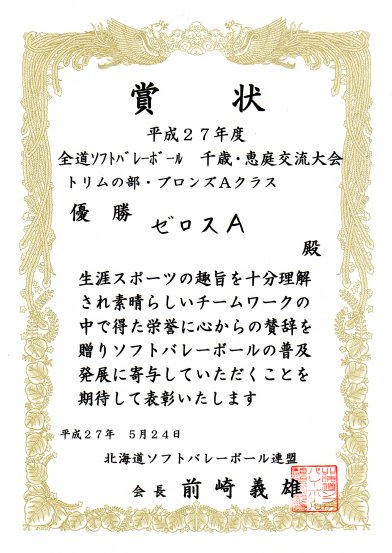 賞状
平成２７年度
全道ｿﾌﾄﾊﾞﾚｰﾎﾞｰﾙ　千歳・恵庭交流大会
トリムの部・ブロンズＡクラス
優勝
ゼロスＡ
殿
生涯スポーツの趣旨を十分理解
され素晴らしいチームワークの
中で得た栄誉に心からの賛辞を
贈りソフトバレーボールの普及
発展に寄与していただくことを
期待して表彰いたします
平成２７年　５月２４日
北海道ソフトバレーボール連盟
会長　前崎義雄